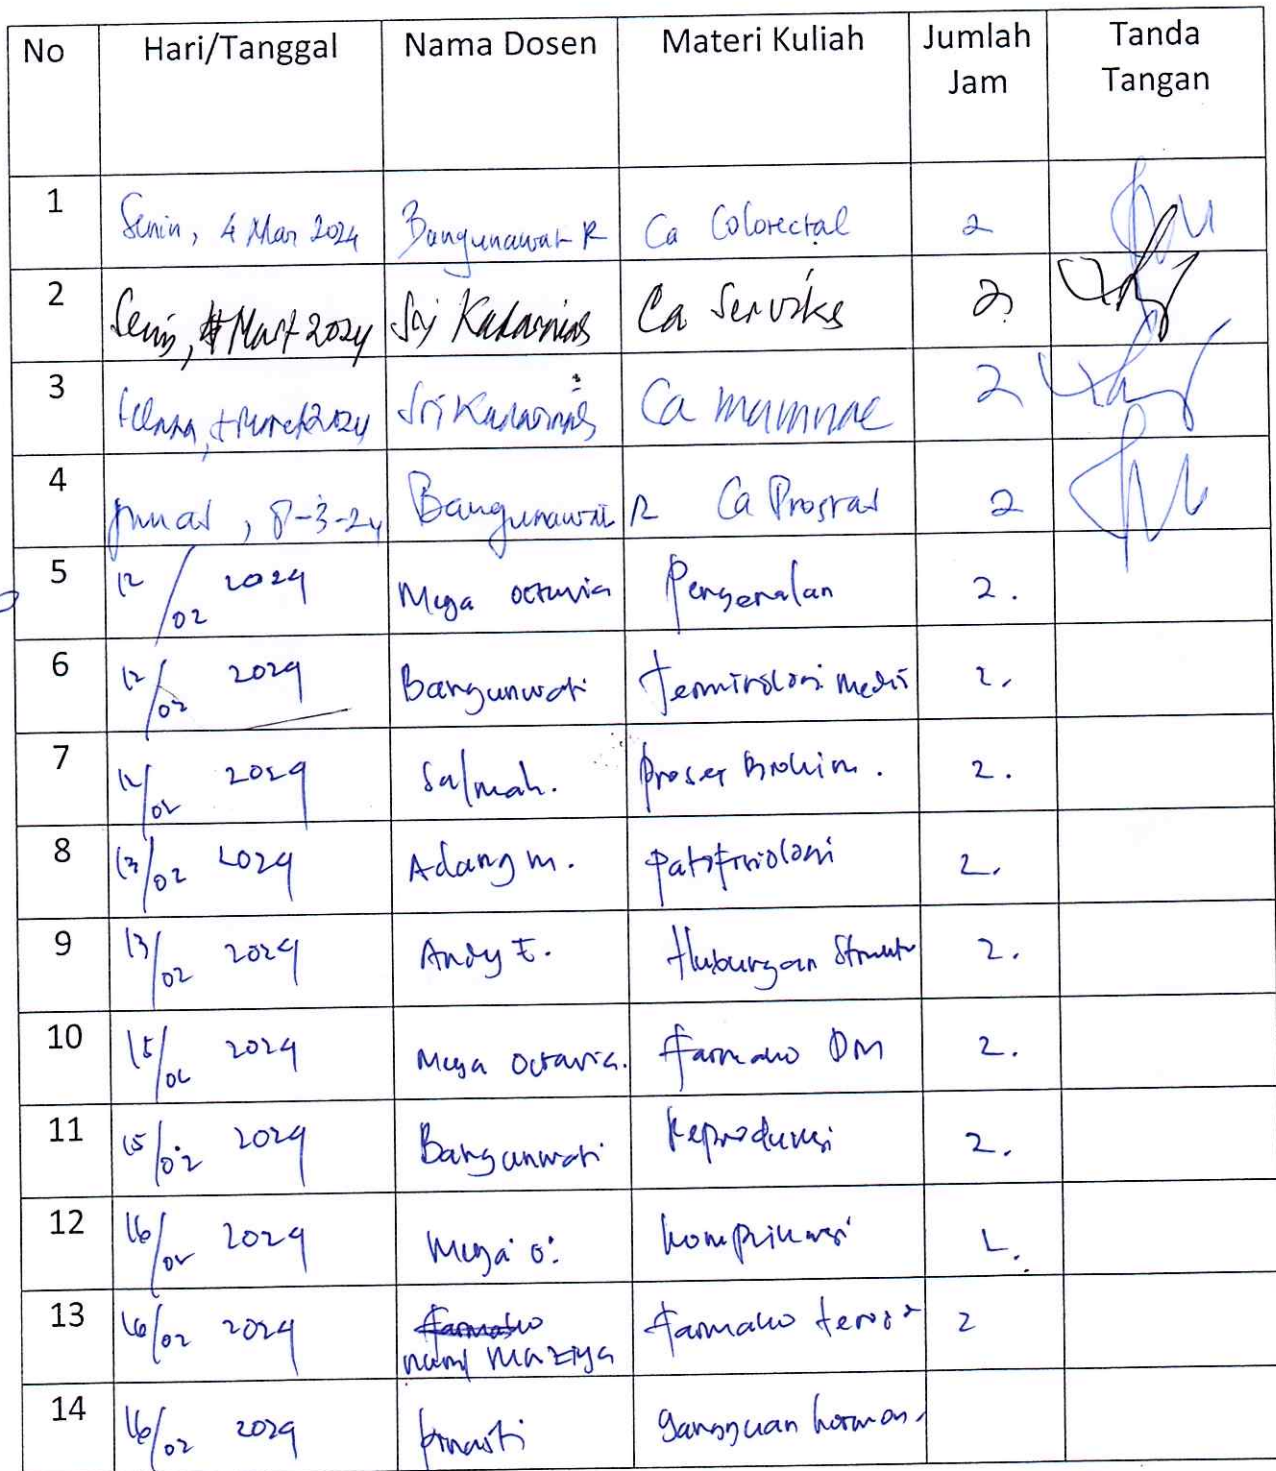 No Hari/Tanggal Nama Dosen Materi Kuliah Jumlah Jam Tanda Tangan
1 Senin, 4 Mar 2024 Bangunawati R Ca Colorectal 2
2 Senin, Mart 2024 Sri Kadarinas Ca Serviks 2
3 Maret 2024 Sri Kadarinas Ca mammae 2
4 Jumat, 8-3-24 Bangunawati R Ca Prostat 2
5 12/02 2024 Mega Octavia Pengenalan 2.
6 12/02 2024 Bangunwati Terminologi Medis 2.
7 12/02 2024 Salmah. Proses 2.
8 13/02 2024 Adang M. Patofisiologi 2.
9 13/02 2024 Andy E. Hubungan Struktur 2.
10 15/02 2024 Mega Octavia. Farmako DM 2.
11 15/02 2024 Bangunwati Reproduksi 2.
12 16/02 2024 Mega O. Komplikasi 2.
13 16/02 2024 Farmako Maziya Farmako 2
14 16/02 2024 Gangguan hormon.